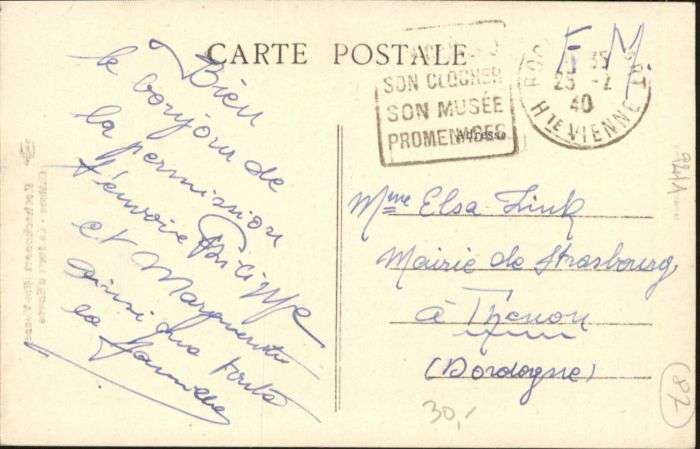 CARTE POSTALE
SON CLOCHER
SON MUSÉE
PROMENADES
F. M.
25 -2
40
HTE VIENNE
Adresse
Bien
le bonjour de
la permission
t'envoie Philippe
et Marguerite
ainsi que toute
la famille
Mme Elsa Link
Mairie de Strasbourg
à Thenon
(Dordogne)
30,-
(87)